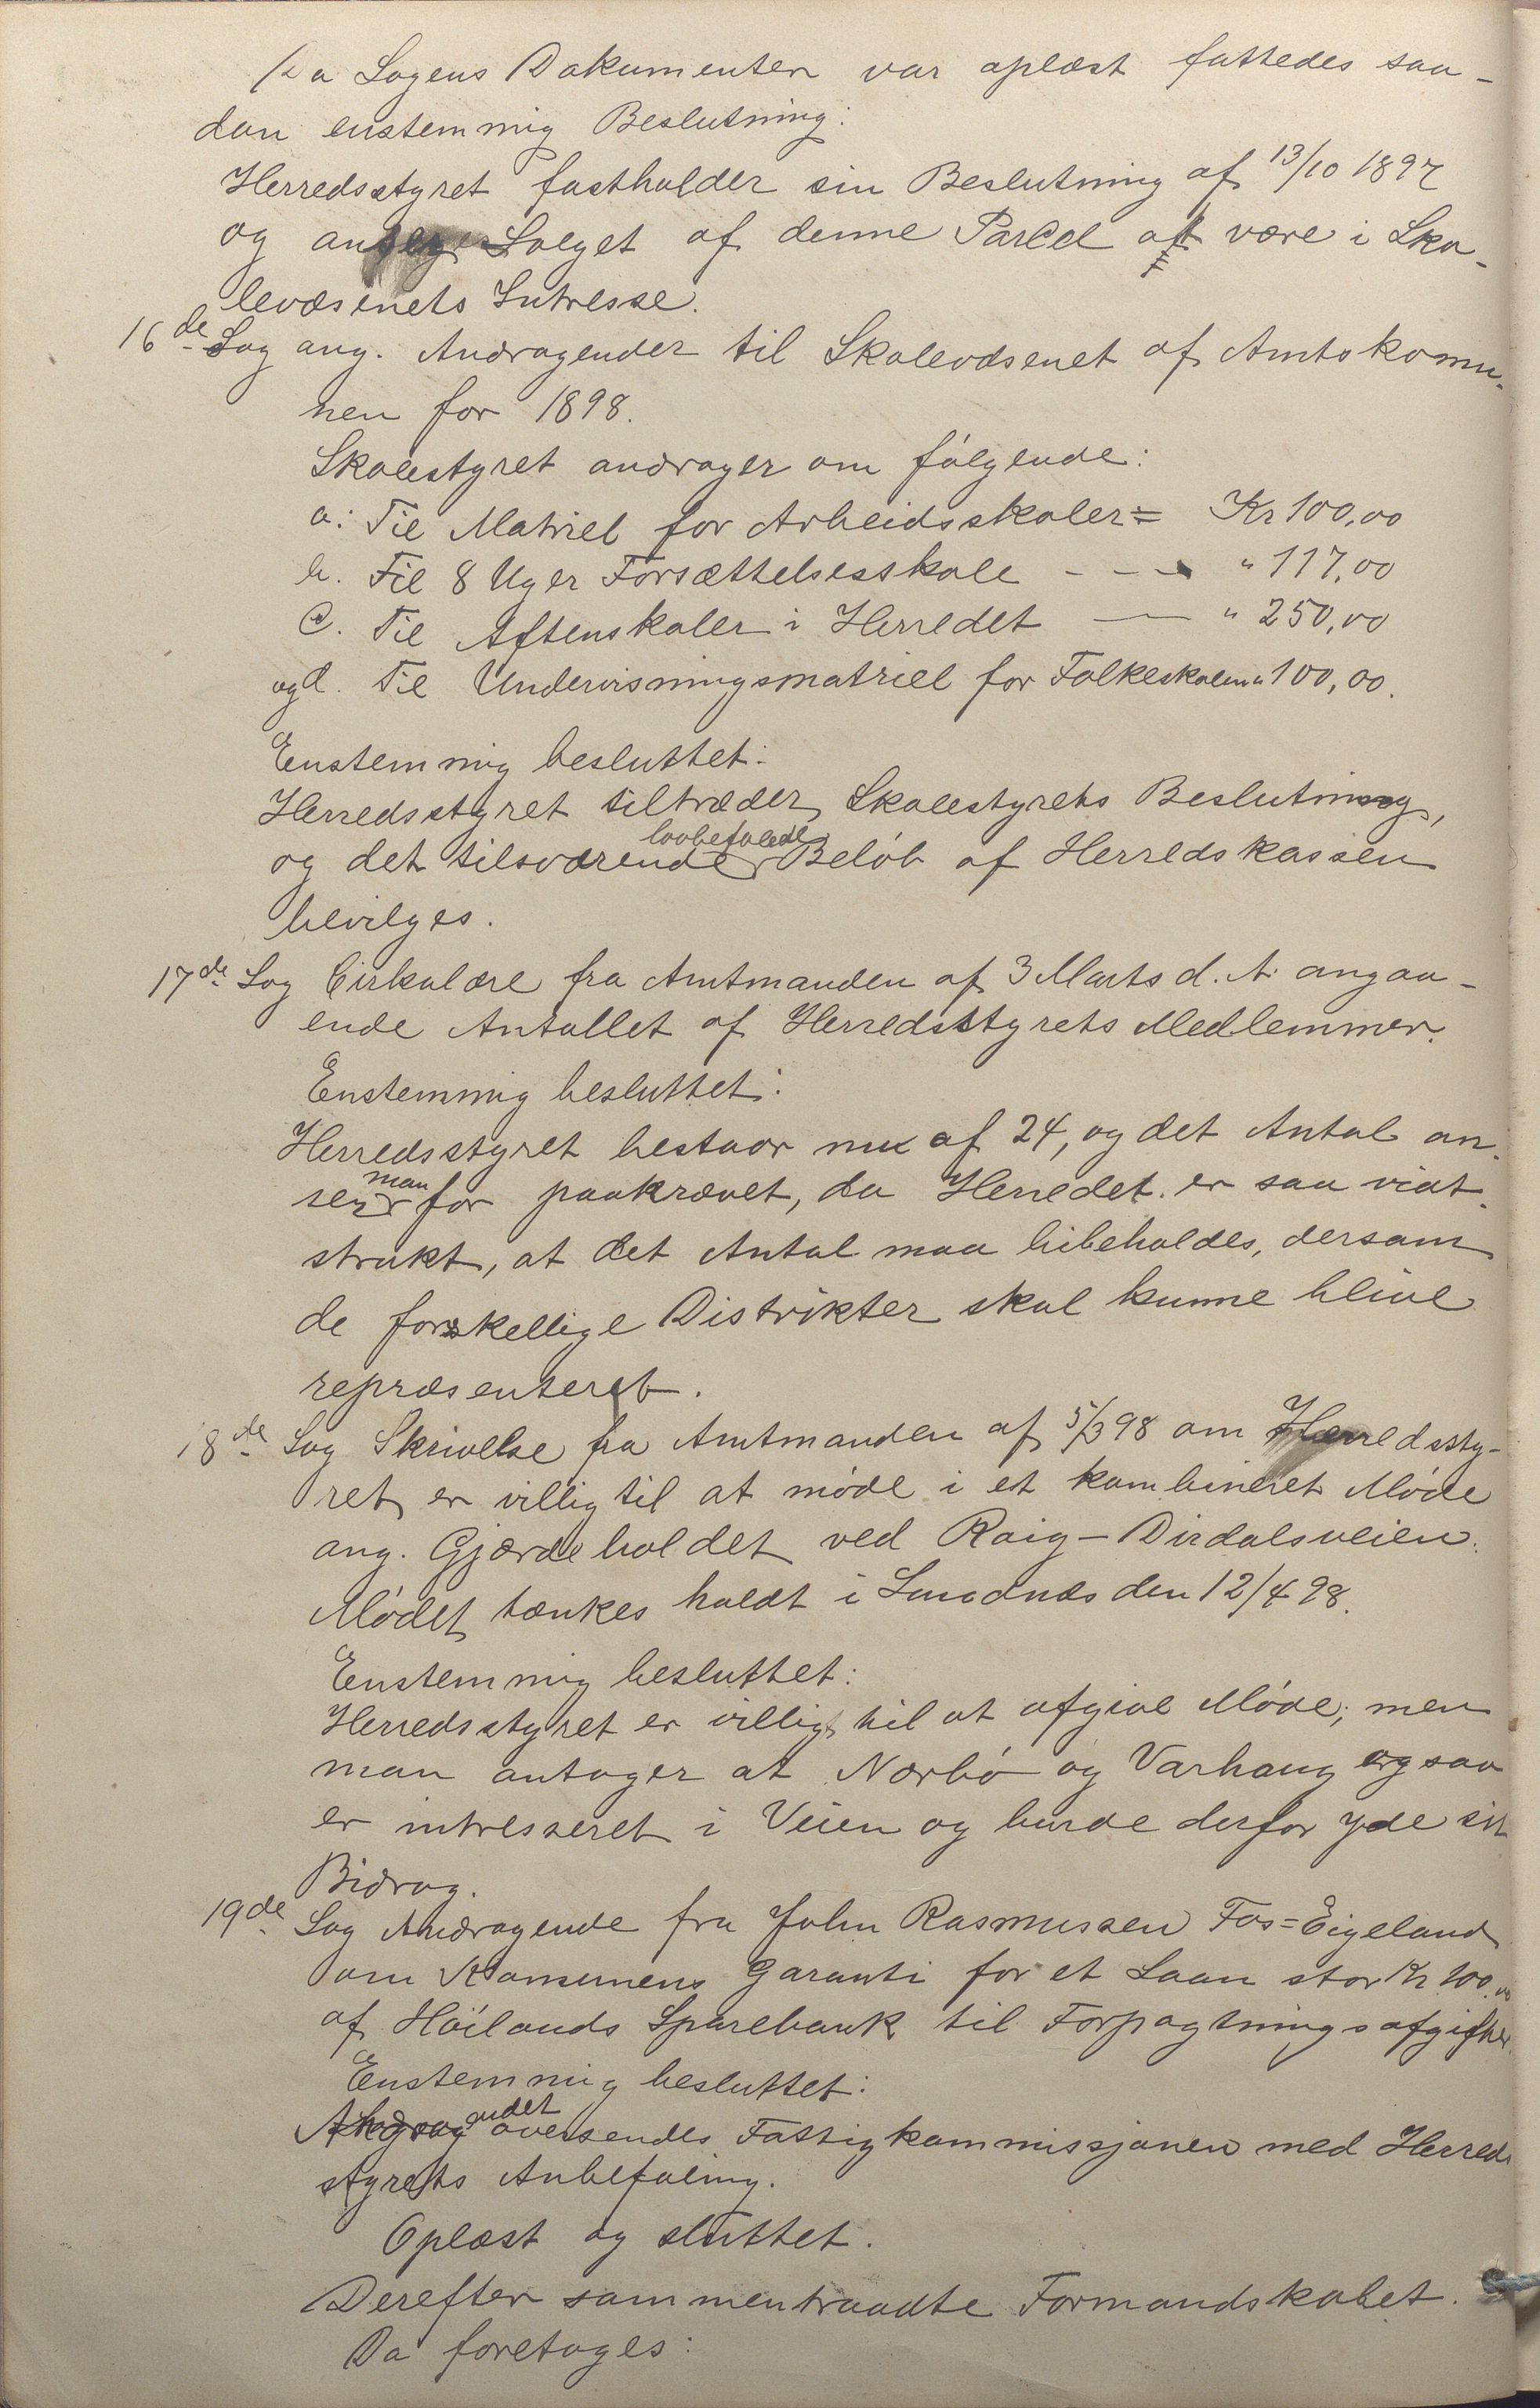 Da Sagens Dokumenter var oplæst fattedes saa-
dan enstemmig Beslutning:
Herredsstyret fastholder sin Beslutning af 13/10 1897
og anser Salget af denne Parcel at være i Sko-
levæsenets Intresse.
16de Sag ang. Andragender til Skolevæsenet af Amtskomu-
nen for 1898.
Skolestyret andrager om følgende:
a: Til Matriel for Arbeidsskoler = Kr 100,00
b. Til 8 Uger Forsættelsesskole - - - " 117,00
c. Til Aftenskoler i Herredet — " 250,00
og d. Til Undervisningsmatriel for Folkeskolen " 100,00.
Enstemmig besluttet:
Herredsstyret tiltræder Skolestyrets Beslutning,
lovbefalede
og det tilsværende Beløb af Herredskassen
bevilges.
17de Sag Cirkulære fra Amtmanden af 3 Marts d. A. angaa-
ende Antallet af Herredsstyrets Medlemmer.
Enstemmig besluttet:
Herredsstyret bestaar nu af 24, og det Antal an-
man
ser for paakrævet, da Herredet er saa vidt-
strakt, at det Antal maa bibeholdes, dersom
de forskellige Distrikter skal kunne blive
repræsenteret.
18de Sag Skrivelse fra Amtmanden af 5/3 98 om Herredssty-
ret er villig til at møde i et kombineret Møde
ang. Gjærdeholdet ved Raig - Dirdalsveien.
Mødet tænkes holdt i den 12/4 98.
Enstemmig besluttet:
Herredsstyret er villig til at afgive Møde; men
man antager at Nærbø og Varhaug ogsaa
er intresseret i Veien og burde derfor yde sit
Bidrag.
19de Sag Andragende fra John Rasmussen Fos=Eigeland
om Komunens Garanti for et Laan stor Kr 100.00
af Høilands Sparebank til Forpagtningsafgifter.
Enstemmig besluttet:
andet
Andrag oversendes Fattigkommissjonen med Herreds
styrets Anbefaling.
Oplæst og sluttet.
Derefter sammentraadte Formandskabet.
Da foretoges: